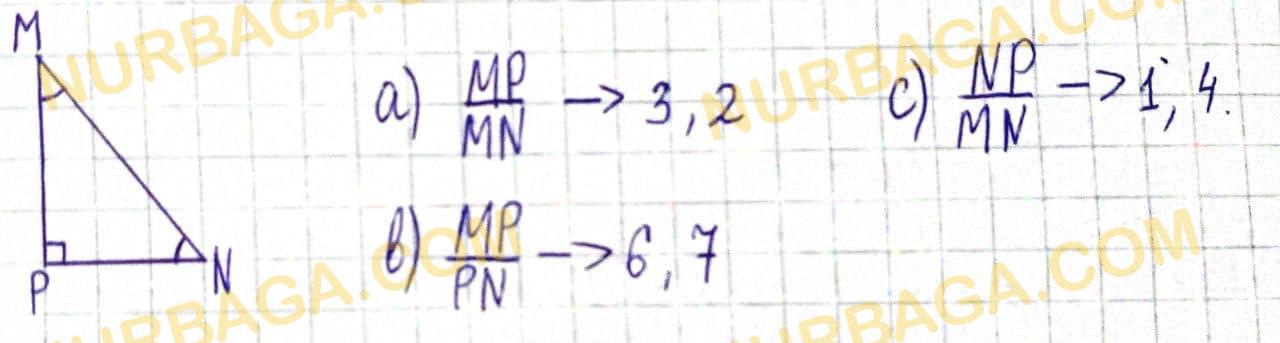 M
P
N
a) MP/MN -> 3, 2
b) MP/PN -> 6, 7
c) NP/MN -> 1, 4.
NURBAGA.COM
NURBAGA.COM
NURBAGA.COM
NURBAGA.COM
NURBAGA.COM